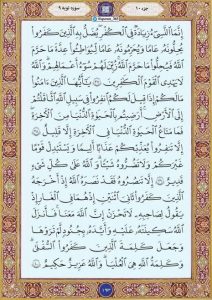 جزء ۱۰
سوره توبه ۹
إِنَّمَا ٱلنَّسِىٓءُ زِيَادَةٌ فِى ٱلْكُفْرِ يُضَلُّ بِهِ ٱلَّذِينَ كَفَرُوا۟
يُحِلُّونَهُۥ عَامًا وَيُحَرِّمُونَهُۥ عَامًا لِّيُوَاطِـُٔوا۟ عِدَّةَ مَا حَرَّمَ
ٱللَّهُ فَيُحِلُّوا۟ مَا حَرَّمَ ٱللَّهُ زُيِّنَ لَهُمْ سُوٓءُ أَعْمَٰلِهِمْ وَٱللَّهُ
لَا يَهْدِى ٱلْقَوْمَ ٱلْكَٰفِرِينَ ٣٧ يَٰٓأَيُّهَا ٱلَّذِينَ ءَامَنُوا۟
مَا لَكُمْ إِذَا قِيلَ لَكُمُ ٱنفِرُوا۟ فِى سَبِيلِ ٱللَّهِ ٱثَّاقَلْتُمْ
إِلَى ٱلْأَرْضِ أَرَضِيتُم بِٱلْحَيَوٰةِ ٱلدُّنْيَا مِنَ ٱلْءَاخِرَةِ
فَمَا مَتَٰعُ ٱلْحَيَوٰةِ ٱلدُّنْيَا فِى ٱلْءَاخِرَةِ إِلَّا قَلِيلٌ ٣٨
إِلَّا تَنفِرُوا۟ يُعَذِّبْكُمْ عَذَابًا أَلِيمًا وَيَسْتَبْدِلْ قَوْمًا
غَيْرَكُمْ وَلَا تَضُرُّوهُ شَيْـًٔا وَٱللَّهُ عَلَىٰ كُلِّ شَىْءٍ
قَدِيرٌ ٣٩ إِلَّا تَنصُرُوهُ فَقَدْ نَصَرَهُ ٱللَّهُ إِذْ أَخْرَجَهُ
ٱلَّذِينَ كَفَرُوا۟ ثَانِىَ ٱثْنَيْنِ إِذْ هُمَا فِى ٱلْغَارِ إِذْ
يَقُولُ لِصَٰحِبِهِۦ لَا تَحْزَنْ إِنَّ ٱللَّهَ مَعَنَا فَأَنزَلَ
ٱللَّهُ سَكِينَتَهُۥ عَلَيْهِ وَأَيَّدَهُۥ بِجُنُودٍ لَّمْ تَرَوْهَا
وَجَعَلَ كَلِمَةَ ٱلَّذِينَ كَفَرُوا۟ ٱلسُّفْلَىٰ
وَكَلِمَةُ ٱللَّهِ هِىَ ٱلْعُلْيَا وَٱللَّهُ عَزِيزٌ حَكِيمٌ ٤٠
١٩٣